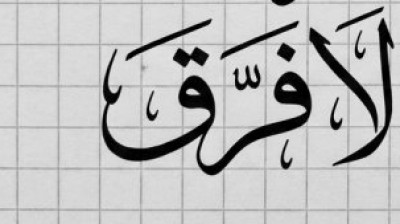 لا فرّق